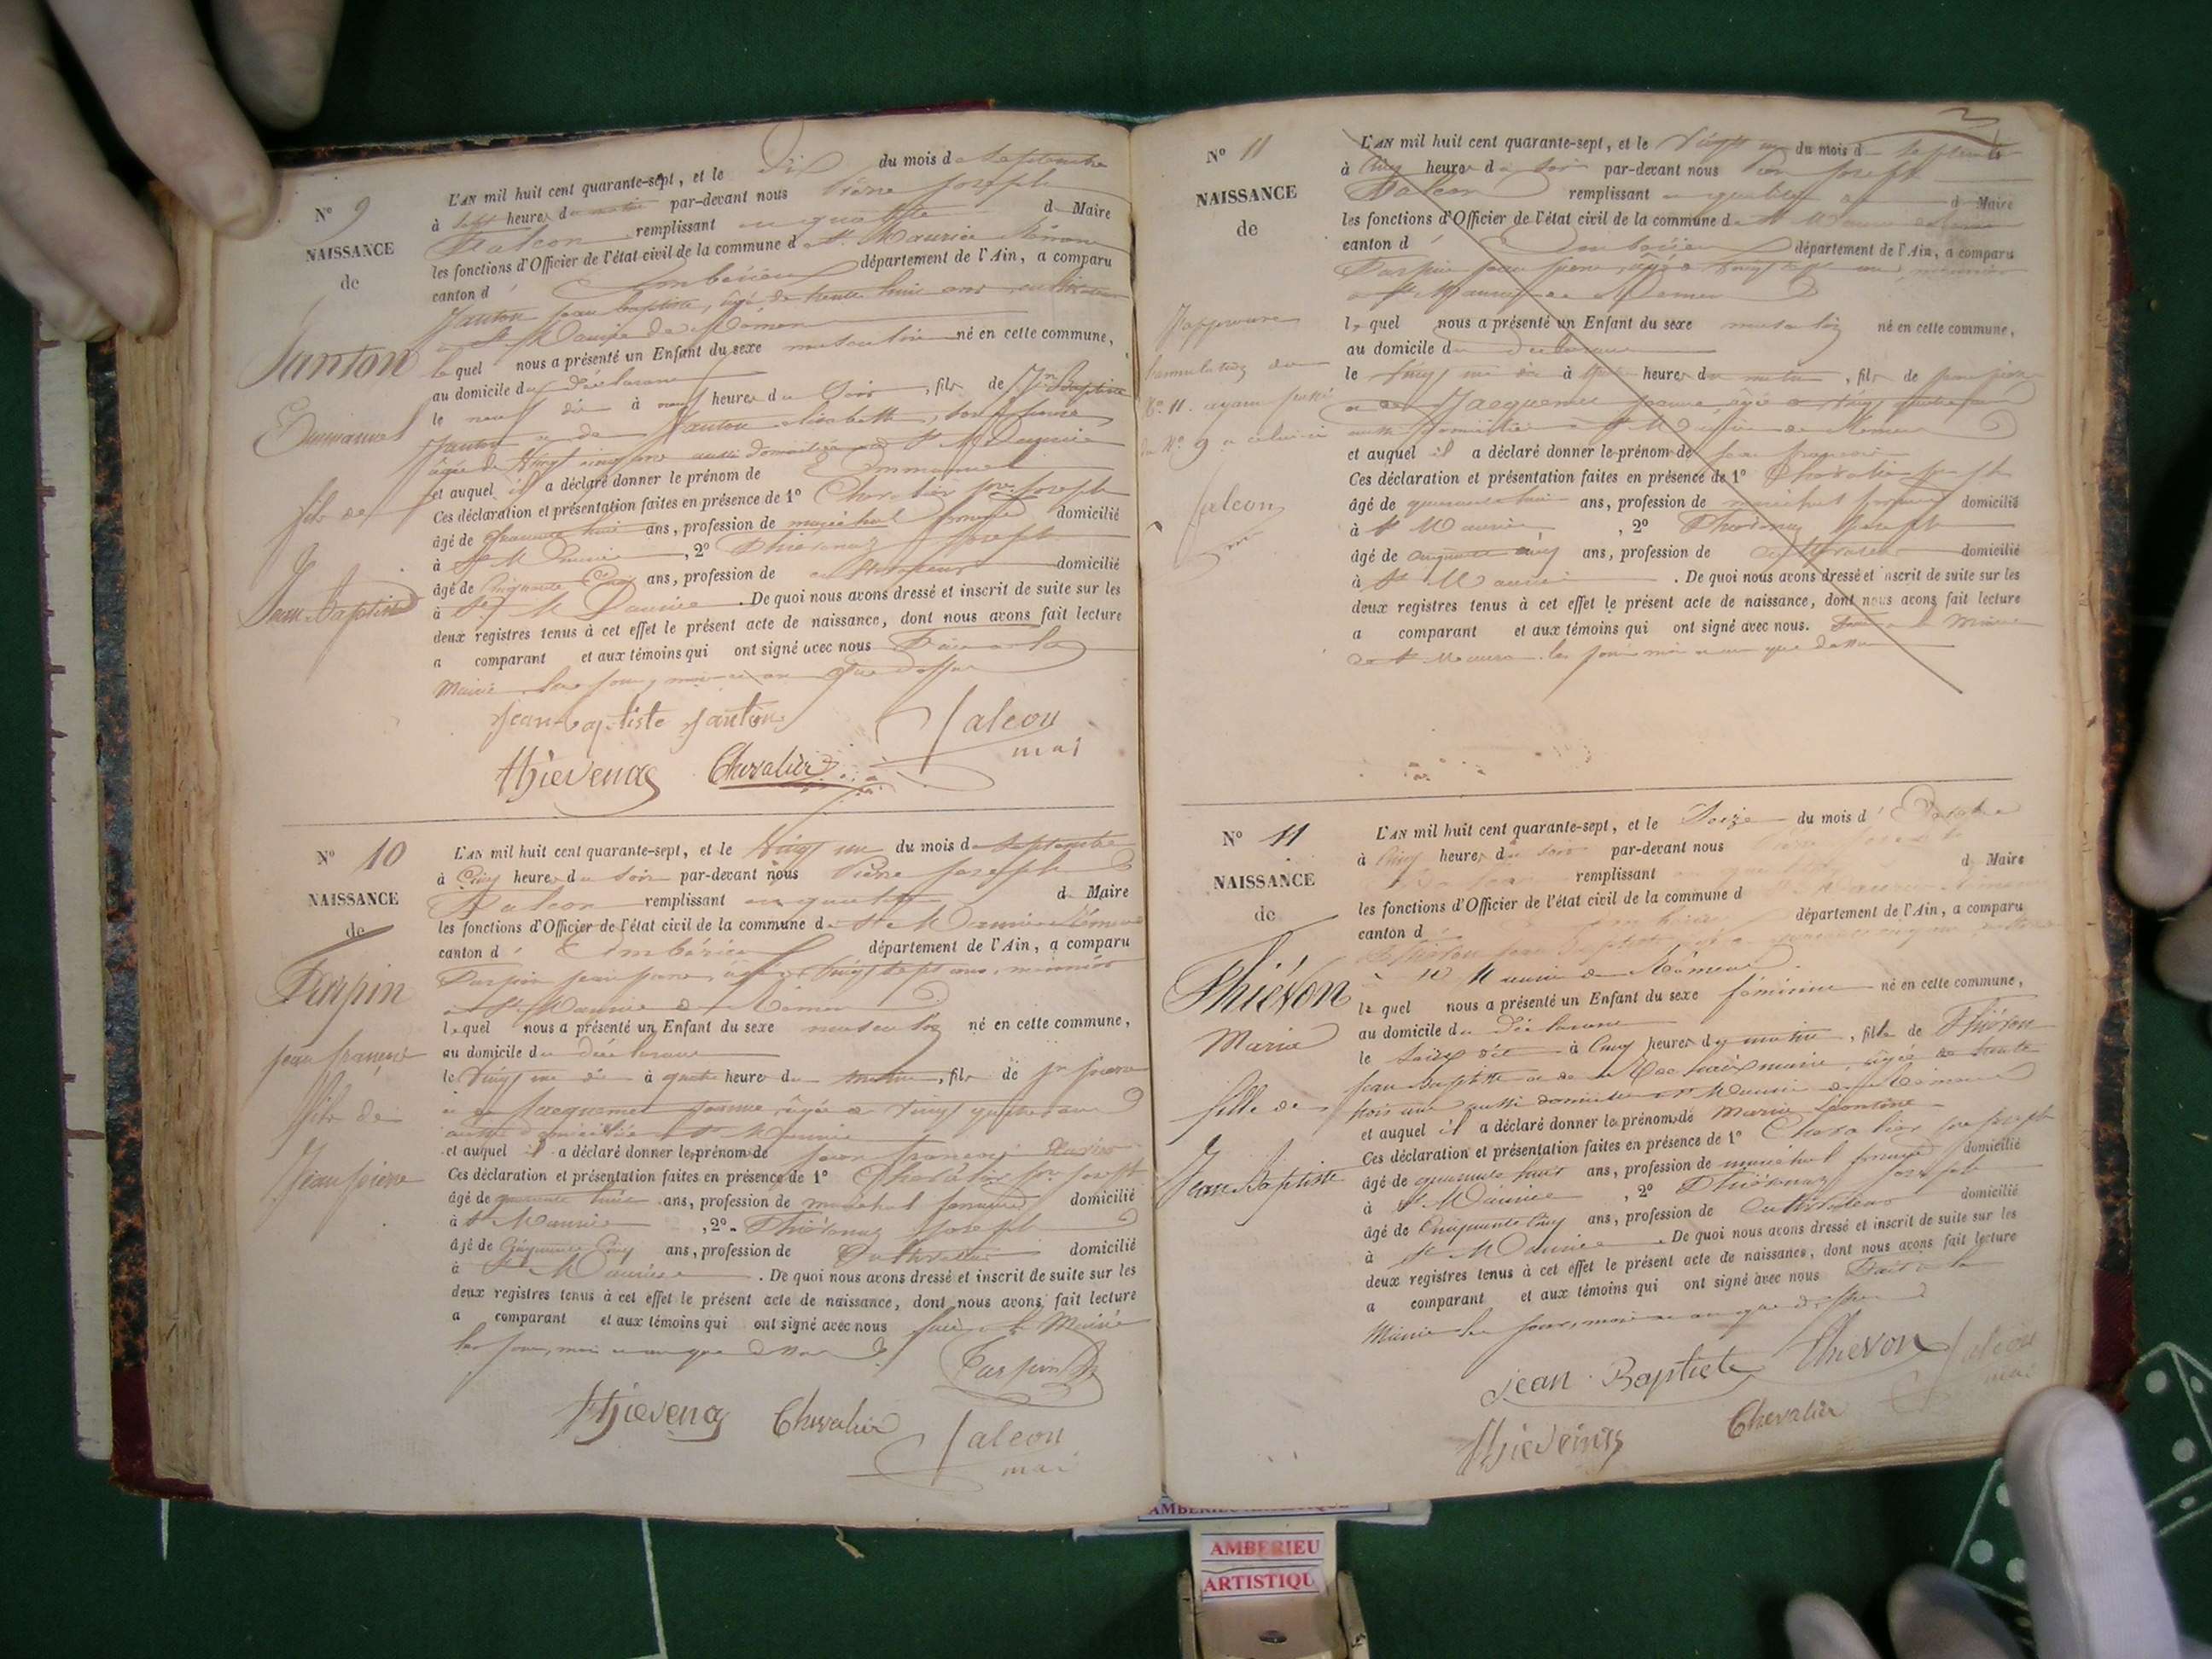 N° 9
NAISSANCE
de
Janton
Emmanuel
fils de
Jean Baptiste
L'AN mil huit cent quarante-sept, et le Dix du mois de Septembre
à Sept heures du matin par-devant nous Pierre Joseph
Falcon remplissant en qualité de Maire
les fonctions d'Officier de l'état civil de la commune de St Maurice Rémens
canton d'Ambérieu département de l'Ain, a comparu
Janton Jean baptiste, âgé de trente huit ans, cultivateur
à St Maurice de Rémens
lequel nous a présenté un Enfant du sexe masculin né en cette commune,
au domicile du déclarant
le neuf dit à neuf heures du Soir, fils de Jn Baptiste
Janton et de Janton Elisabeth, son épouse
âgée de Vingt cinq ans aussi domiciliée à St Maurice
et auquel il a déclaré donner le prénom de Emmanuel
Ces déclaration et présentation faites en présence de 1° Chevalier pre Joseph
âgé de quarante huit ans, profession de maréchal ferrand domicilié
à St Maurice, 2° Thievenaz Joseph
âgé de Cinquante Cinq ans, profession de cultivateur domicilié
à St Maurice. De quoi nous avons dressé et inscrit de suite sur les
deux registres tenus à cet effet le présent acte de naissance, dont nous avons fait lecture
a comparant et aux témoins qui ont signé avec nous Fait à la
Mairie les jour, mois et an que dessus
Jean-baptiste Janton
Falcon
mai
Thievenaz Chevalier
N° 10
NAISSANCE
de
Turpin
jean françois
fils de
Jean pierre
L'AN mil huit cent quarante-sept, et le Vingt un du mois de Septembre
à Cinq heures du Soir par-devant nous Pierre Joseph
Falcon remplissant en qualité de Maire
les fonctions d'Officier de l'état civil de la commune de St Maurice Rémens
canton d'Ambérieu département de l'Ain, a comparu
Turpin jean pierre, âgé de Vingt sept ans, meunier
à St Maurice de Rémens
lequel nous a présenté un Enfant du sexe masculin né en cette commune,
au domicile du déclarant
le Vingt un dit à quatre heures du matin, fils de jn pierre
et de Jacquemet jeanne, âgée de Vingt quatre ans
aussi domiciliée à St Maurice
et auquel il a déclaré donner le prénom de jean françois
Ces déclaration et présentation faites en présence de 1° Chevalier pre Joseph
âgé de quarante huit ans, profession de maréchal ferrand domicilié
à St Maurice, 2° Thievenaz Joseph
âgé de Cinquante Cinq ans, profession de Cultivateur domicilié
à St Maurice. De quoi nous avons dressé et inscrit de suite sur les
deux registres tenus à cet effet le présent acte de naissance, dont nous avons fait lecture
a comparant et aux témoins qui ont signé avec nous fait à la Mairie
les jour, mois et an que dessus
Turpin
Thievenaz Chevalier Falcon
mai
N° 11
NAISSANCE
de
J'approuve
l'annulation du
N° 11. ayant passé
du N° 9 à celui-ci
Falcon
L'AN mil huit cent quarante-sept, et le Vingt un du mois de Septembre
à Cinq heures du Soir par-devant nous Pierre Joseph
Falcon remplissant en qualité de Maire
les fonctions d'Officier de l'état civil de la commune de St Maurice de Rémens
canton d'Ambérieu département de l'Ain, a comparu
Turpin jean pierre, âgé de Vingt sept ans, meunier
à St Maurice de Rémens
lequel nous a présenté un Enfant du sexe masculin né en cette commune,
au domicile du déclarant
le Vingt un dit à quatre heures du matin, fils de jean pierre
et de Jacquemet jeanne, âgée de Vingt quatre ans
aussi domiciliée à St Maurice de Rémens
et auquel il a déclaré donner le prénom de jean françois
Ces déclaration et présentation faites en présence de 1° Chevalier pre Joseph
âgé de quarante huit ans, profession de maréchal ferrand domicilié
à St Maurice, 2° Thievenaz Joseph
âgé de cinquante cinq ans, profession de cultivateur domicilié
à St Maurice. De quoi nous avons dressé et inscrit de suite sur les
deux registres tenus à cet effet le présent acte de naissance, dont nous avons fait lecture
a comparant et aux témoins qui ont signé avec nous. Fait à la Mairie
de St Maurice les jour mois et an que dessus
N° 11
NAISSANCE
de
Thiévon
Marie
fille de
Jean Baptiste
L'AN mil huit cent quarante-sept, et le Seize du mois d'Octobre
à Cinq heures du Soir par-devant nous
remplissant en qualité de Maire
les fonctions d'Officier de l'état civil de la commune d
canton d département de l'Ain, a comparu
Thiévon jean Baptiste
à St Maurice de Rémens
lequel nous a présenté un Enfant du sexe féminin né en cette commune,
au domicile du Déclarant
le Seize dit à Cinq heures du matin, fille de Thiévon
Jean Baptiste et de marie, âgée de trente
trois ans aussi domiciliée à St Maurice de Rémens
et auquel il a déclaré donner le prénom de Marie Léontine
Ces déclaration et présentation faites en présence de 1° Chevalier pre joseph
âgé de quarante huit ans, profession de maréchal ferrand domicilié
à St Maurice, 2° Thiévenaz joseph
âgé de Cinquante Cinq ans, profession de Cultivateur domicilié
à St Maurice. De quoi nous avons dressé et inscrit de suite sur les
deux registres tenus à cet effet le présent acte de naissance, dont nous avons fait lecture
a comparant et aux témoins qui ont signé avec nous Fait à la
Mairie les jour, mois et an que dessus
Jean Baptiste Thievon Falcon
mai
Thievenaz Chevalier
AMBERIEU
ARTISTIQU